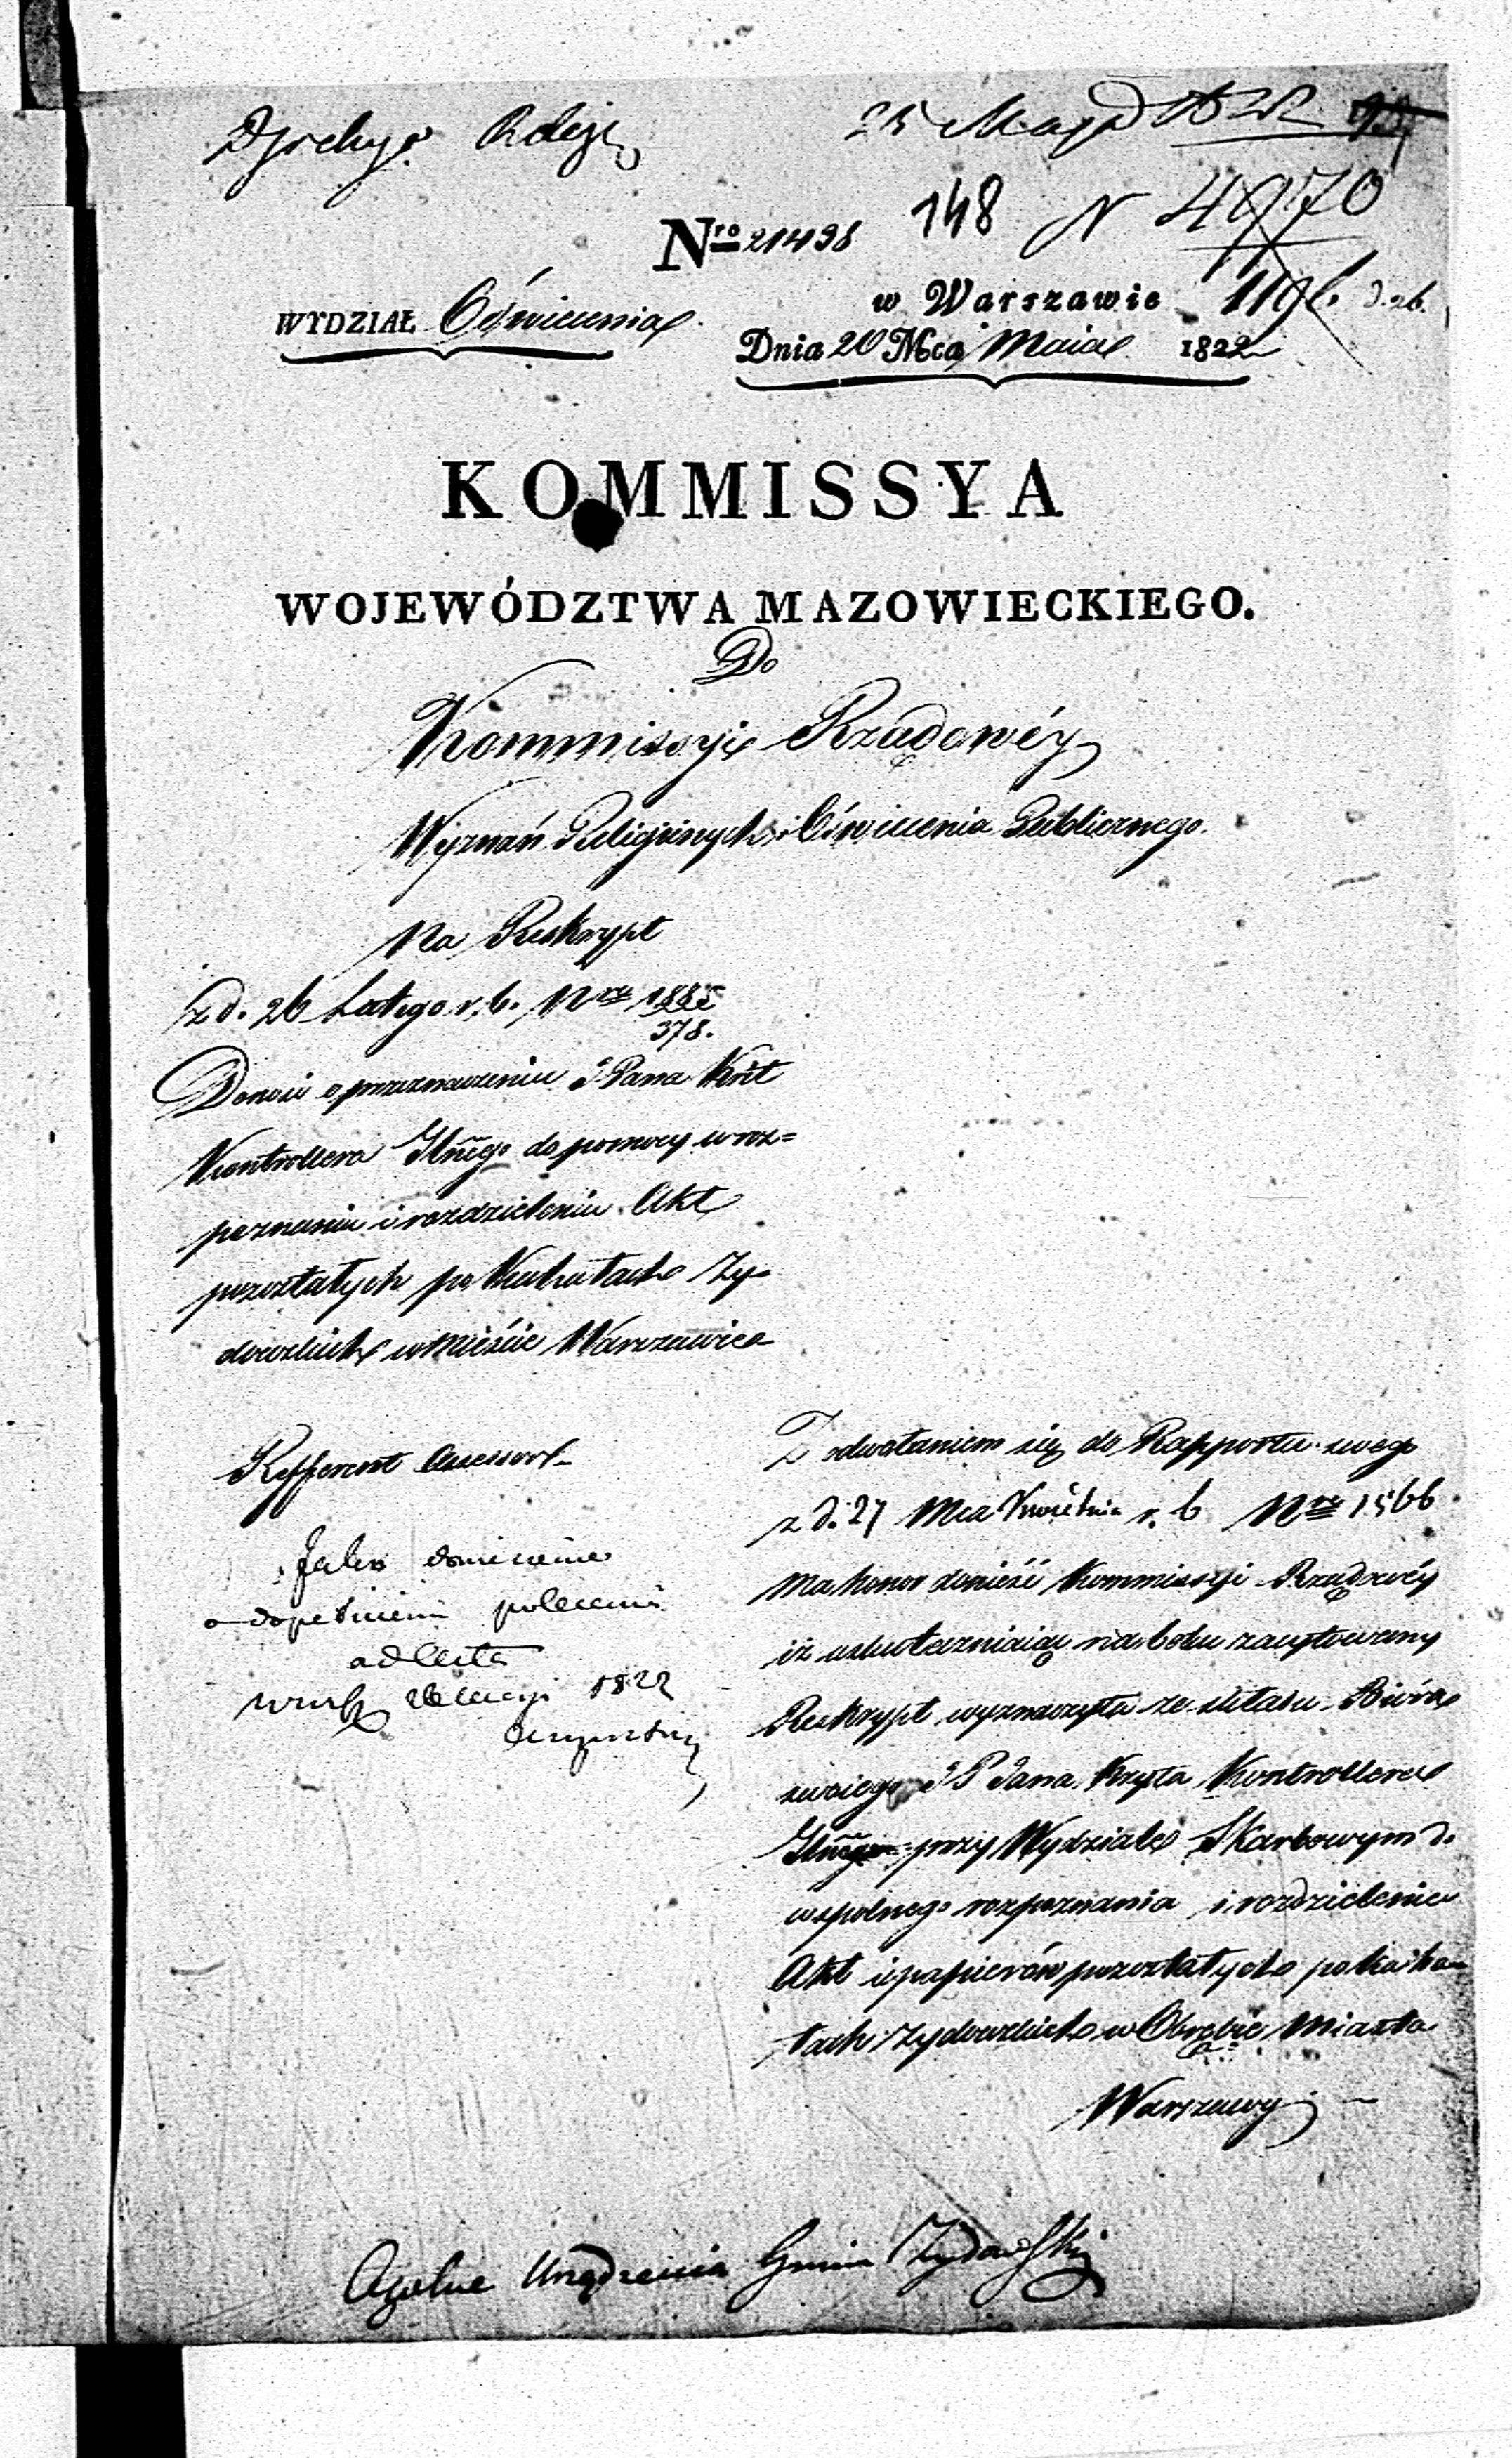 25 Maja 1822
148 N 4970
Nro 21498
1196. d. 26.
w Warszawie
WYDZIAŁ Oświecenia
Dnia 20 Mca Maia 1822
KOMMISSYA
WOJEWÓDZTWA MAZOWIECKIEGO.
Do
Kommissyi Rządowéy
Wyznań Religijnych i Oświecenia Publicznego.
Na Reskrypt
z d. 26 Lutego r. b. Nro 1885
378.
Donosi o przeznaczeniu J Pana Krit
Kontrollera Głnego do pomocy w roz=
poznaniu i rozdzieleniu Akt
pozostałych po Kahałach Ży-
dowskich w Mieście Warszawie
Refferent Assessor
Jako doniesienie
o dopełnieniu polecenia
ad acta
1822
Z odwołaniem się do Rapportu swego
z d. 27 Mca Kwietnia r. b Nro 1566
ma honor donieść Kommissyi Rządowéy
iż uskuteczniaiąc na boku zacytowany
Reskrypt wyznaczyła ze składu Biura
swoiego J P Jana Kryta Kontrollera
Głnego przy Wydziale Skarbowym do
wspólnego rozpoznania i rozdzielenia
Akt i papierów pozostałych po Kaha-
łach żydowskich w Obrębie Miasta
Warszawy
Ogólne Urządzenia Gmin Żydowskich